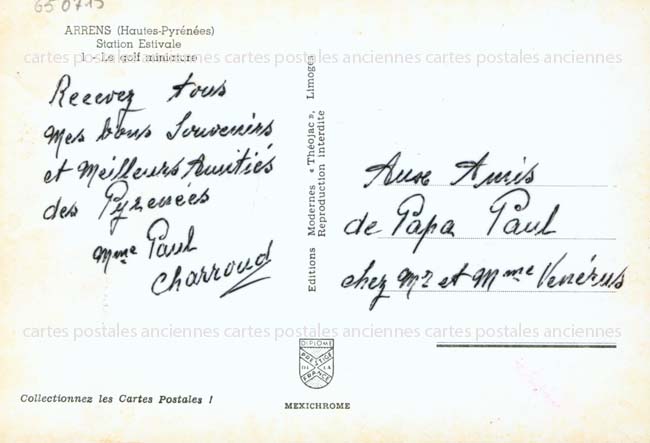 650713
ARRENS (Hautes-Pyrénées)
Station Estivale
1 - Le golf miniature
cartes postales anciennes cartes postales anciennes cartes postales anciennes
Recevez tous
mes bons Souvenirs
et Meilleurs Amitiés
des Pyrenées
Mme Paul
Charroud
Editions Modernes « Théojac », Limoges
Reproduction interdite
Aux Amis
de Papa Paul
chez Mr et Mme Venérus
cartes postales anciennes cartes postales anciennes cartes postales anciennes
DIPLOME
PRESTIGE
DE LA
FRANCE
Collectionnez les Cartes Postales !
MEXICHROME